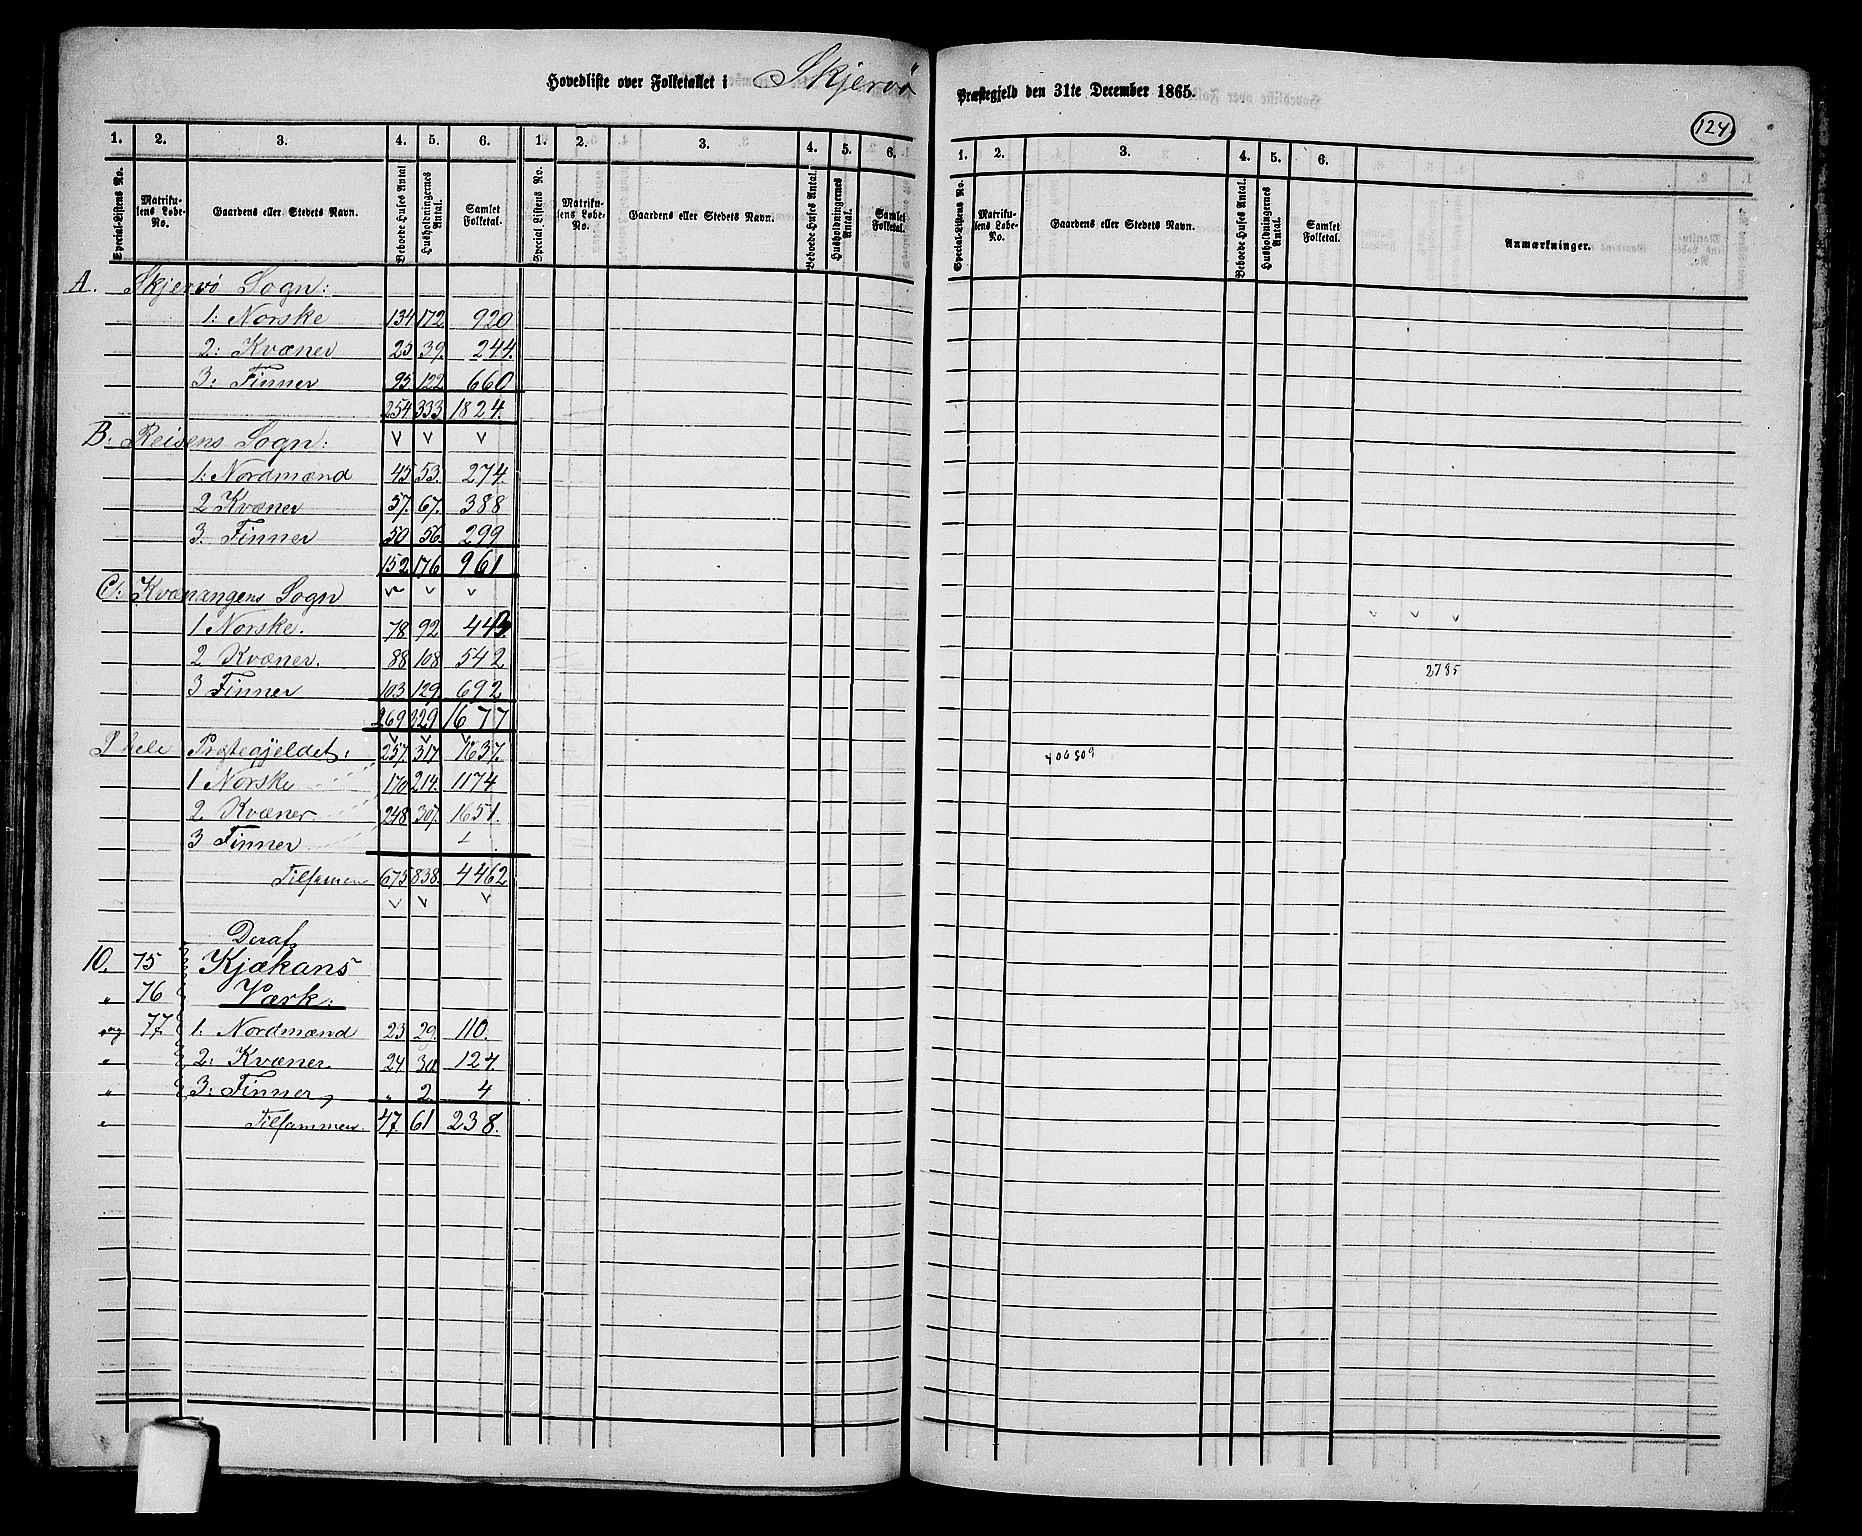 Hovedliste over Folketallet i Skjervö Præstegjeld den 31te December 1865.
124
1. 2. 3. 4. 5. 6. 1. 2. 3. 4. 5. 6. 1. 2. 3. 4. 5. 6.
Special-Listens No. Matrikulens Løbe-No. Gaardens eller Stedets Navn. Beboede Huses Antal Husholdningernes Antal. Samlet Folketal. Special Listens No. Matrikulens Løbe-No. Gaardens eller Stedets Navn. Beboede Huses Antal. Husholdningernes Antal. Samlet Folketal. Special-Listens No. Matrikulens Løbe-No. Gaardens eller Stedets Navn. Beboede Huses Antal. Husholdningernes Antal. Samlet Folketal. Anmærkninger.
A. Skjervö Sogn:
1: Norske 134 172 920
2: Kvæner 25 39. 244.
3: Finner 95 122 660
254 333 1824.
B: Reisens Sogn:
1: Nordmænd 45 53. 274.
2 Kvæner 57. 67. 388
3. Finner 50 56. 299
152 176 961
C: Kvænangens Sogn
1 Norske. 78 92 443
2 Kvæner. 88 108 542
3 Finner 103 129 692
269 329 1677
2785
I hele Præstegjeldet: 257. 317 1637.
1 Norske 170 214. 1174
2 Kvæner 248 307. 1651.
3 Finner
Tilsammen 675 838. 4462
Deraf
10. 75 Kjækans
" 76 Værk:
og 77 1. Nordmænd 23 29. 110.
" 2: Kvæner 24 30 124.
" 3: Finner " 2 4
" Tilsammen. 47. 61 238.